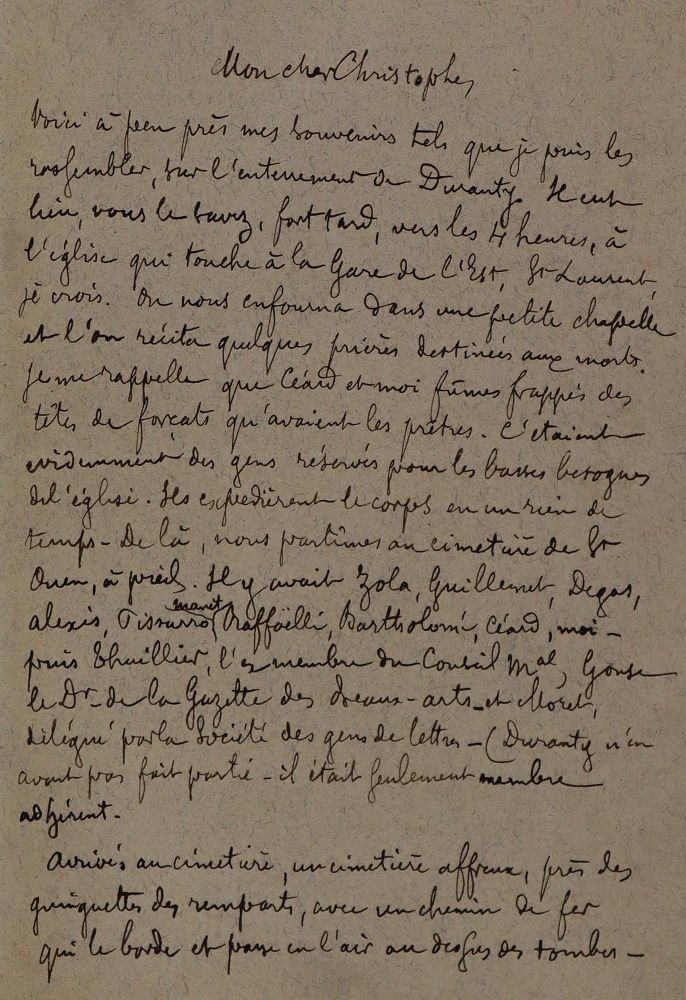 Mon cher Christophe,
Voici à peu près mes souvenirs tels que je puis les
rassembler, sur l'enterrement de Duranty. Il eut
lieu, vous le savez, fort tard, vers les 4 heures, à
l'église qui touche à la Gare de l'Est, St Laurent,
je crois. On nous enfourna dans une petite chapelle
et l'on récita quelques prières destinées aux morts.
Je me rappelle que Céard et moi fûmes frappés des
têtes de forçats qu'avaient les prêtres. C'étaient
evidemment des gens réservés pour les basses besognes
de l'église. Ils expedièrent le corps en un rien de
temps - De là, nous partîmes au cimetière de St
Ouen, à pieds. Il y avait Zola, Guillemet, Degas,
Alexis, Pissarro, manet, Raffaëlli, Bartholomé, Céard, moi -
puis Thuillier, l'ex membre du Conseil Mal, Gonse
le Dr de la Gazette des beaux-arts - et Moret,
délégué par la Société des gens de lettres - (Duranty n'en
avait pas fait partie - il était seulement membre
adhérent -
Arrivés au cimetière, un cimetière affreux, près des
guinguettes des remparts, avec un chemin de fer
qui le borde et passe en l'air au dessus des tombes -